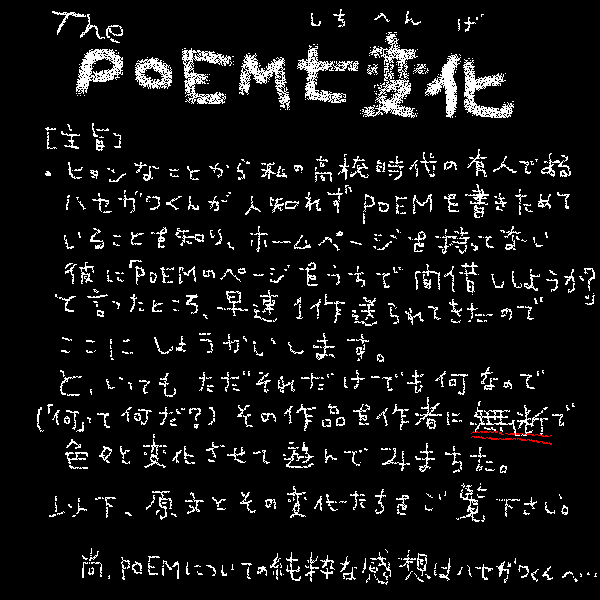 The
しちへんげ
POEM七変化
[主旨]
・ヒョンなことから私の高校時代の友人である
ハセガワくんが人知れずPOEMを書きためて
いることを知り、ホームページを持ってない
彼に「POEMのページをうちで間借ししようか?」
と言ったところ、早速1作送られてきたので
ここにしょうかいします。
と、いってもただそれだけでも何なので
(「何」って何だ?)その作品を作者に無断で
色々と変化させて遊んでみました。
以下、原文とその変化たちをご覧下さい。
尚、POEMについての純粋な感想はハセガワくんへ…